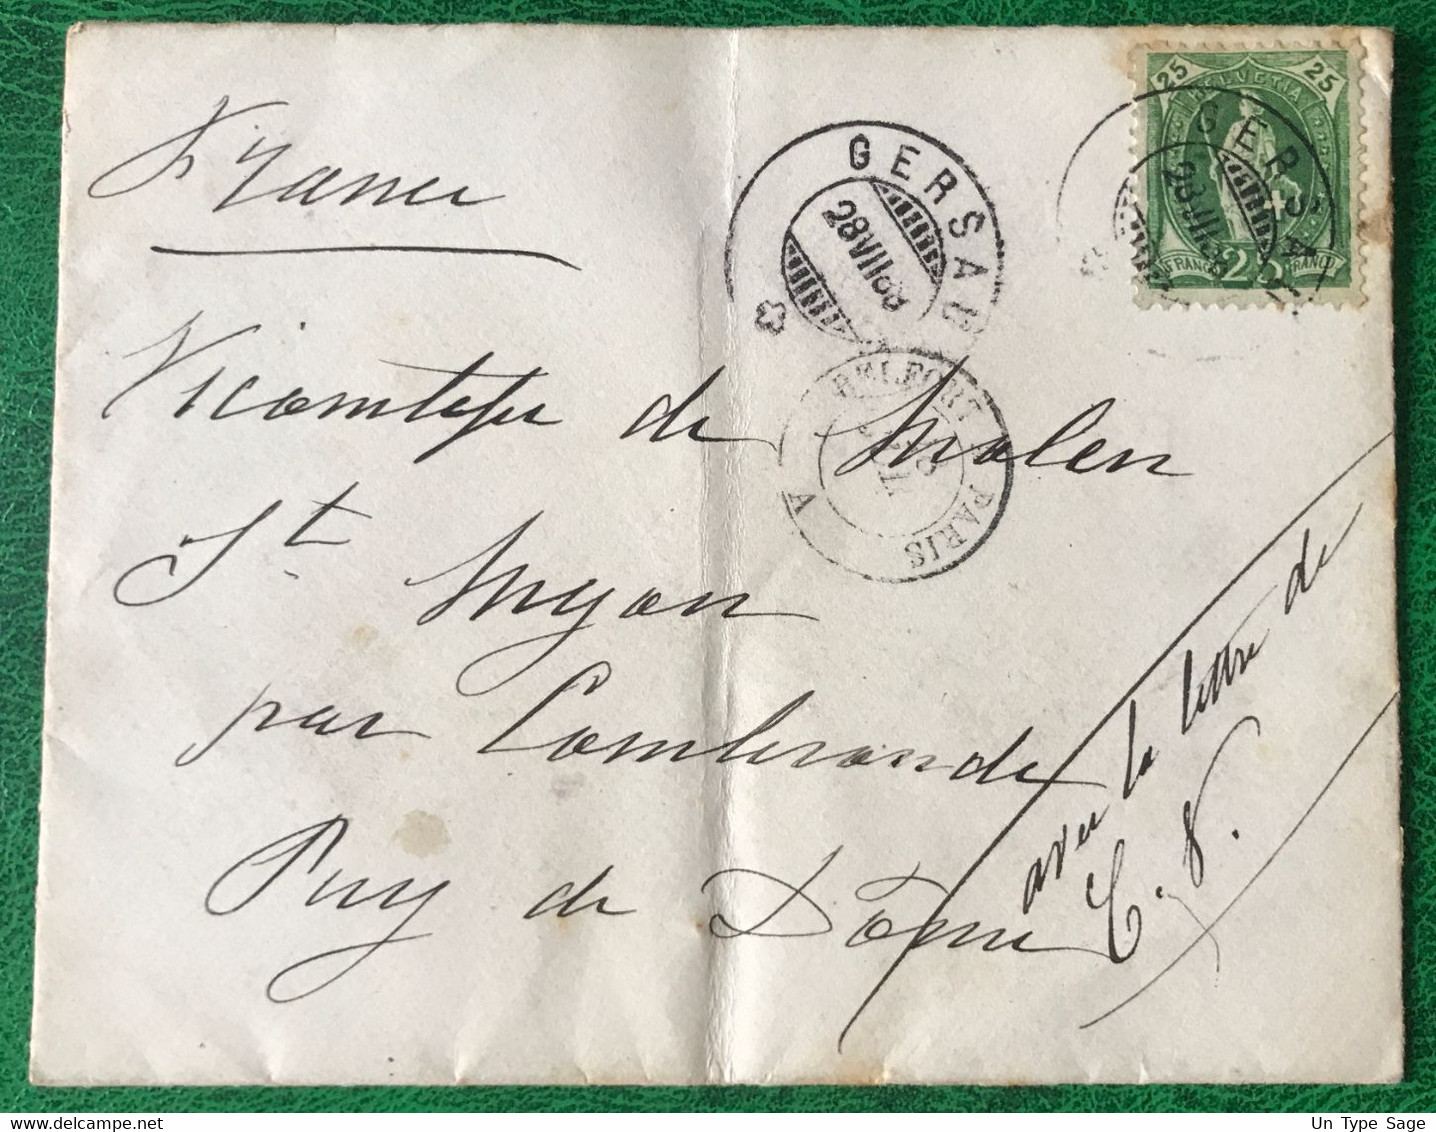 France
25 HELVETIA 25
FRANCO 25 FRANCO
GERSAU
28 VII 88
GERSAU
28 VII 88
BELFORT A PARIS
Vicomtesse de Molen
St Myon
par Combronde
Puy de Dôme
avec la lettre de
C. V.
Un Type Sage